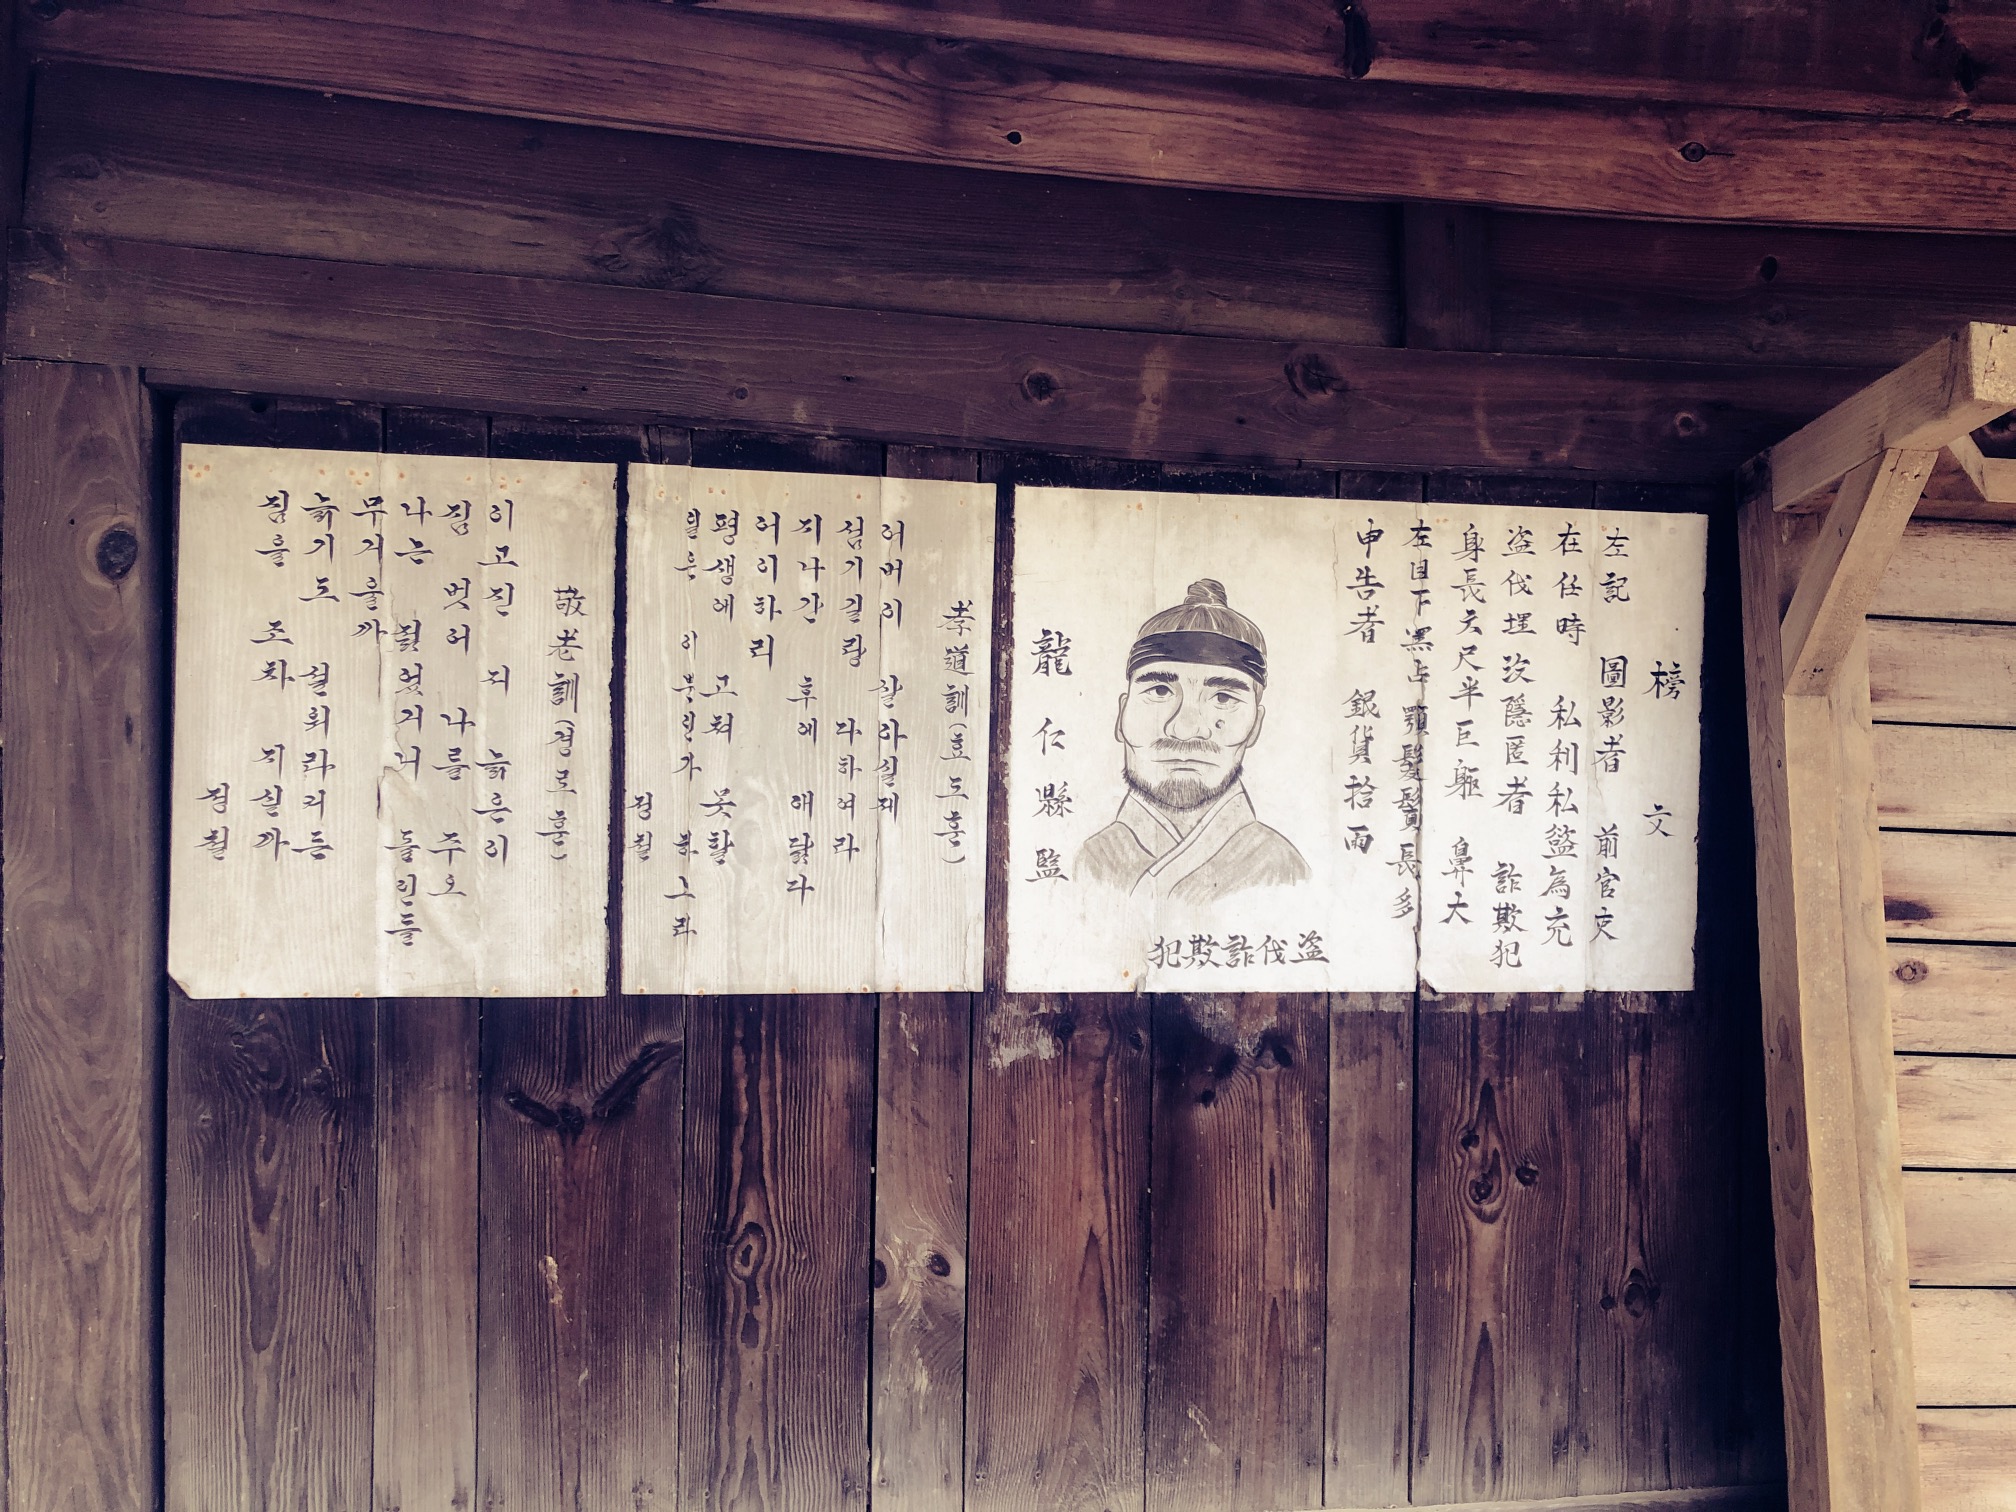 榜文
左記 圖影者 前官吏
在任時 私利私慾為充
盜伐埋沒隱匿者 詐欺犯
身長六尺半巨軀 鼻大
左目下黑占 顎髮鬢長多
申告者 銀貨拾兩
盜伐詐欺犯
龍仁縣監
孝道訓(효도훈)
어버이 살아실제
섬기길랑 다하여라
지나간 후에 애닯다
어이하리
평생에 고쳐 못할
일은 이뿐인가 하노라
정철
敬老訓(경로훈)
이고진 저 늙은이
짐 벗어 나를 주오
나는 젊었거니 돌인들
무거울까
늙기도 설워라커든
짐을 조차 지실까
정철